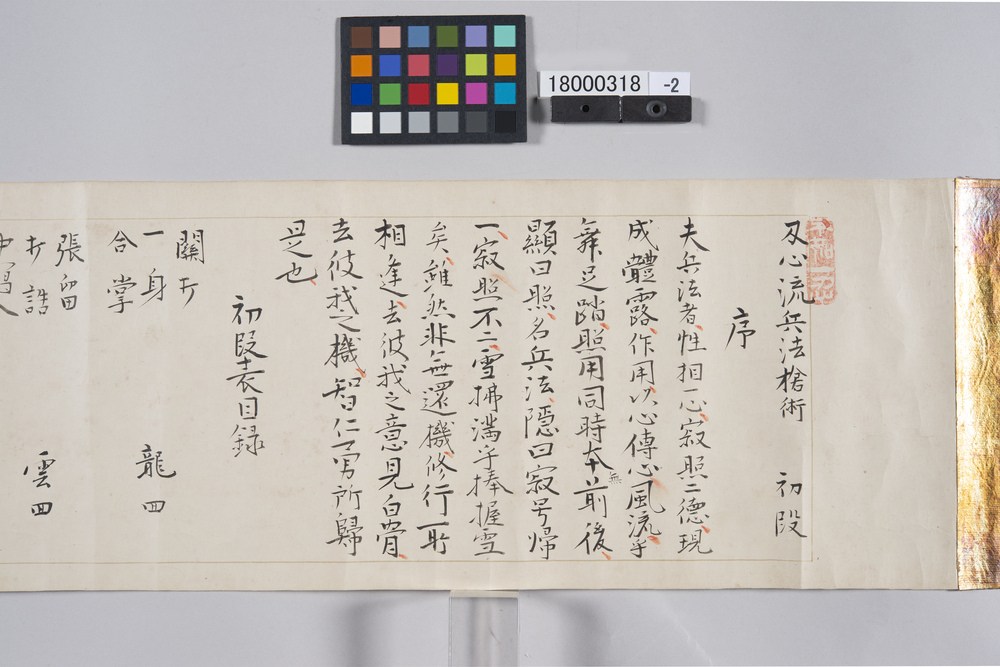 18000318 -2
及心流兵法槍術 初段
序
夫兵法者性相一心寂照二德現
成體露作用以心傳心風流乎
舞足踏照用同時本無前後
顯曰照名兵法隱曰寂号帰
一寂照不二雪拂満乎捧握雪
矣雖然非無還機修行一所
相逢去彼我之意見白骨
去彼我之機智仁勇所歸
是也
初段表目録
關打
一身 龍四
合掌
張留
打誥 雲四